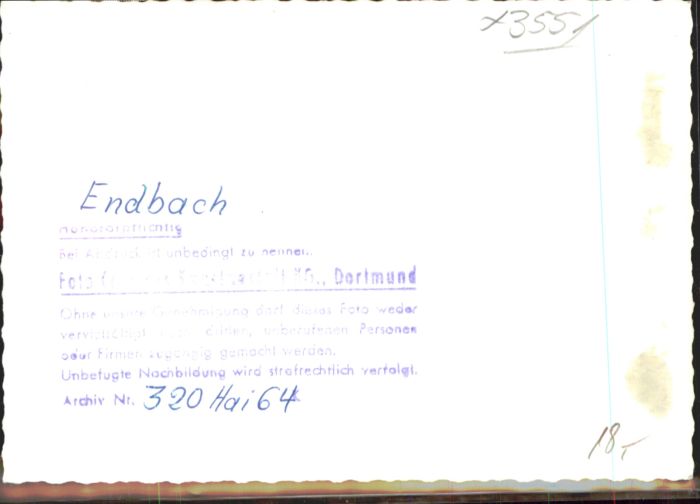 x3551
Endbach
honorarpflichtig
Bei Abdruck ist unbedingt zu nennen:
Foto KG., Dortmund
Ohne unsere Genehmigung darf dieses Foto weder
vervielfältigt noch dritten, unberufenen Personen
oder Firmen zugängig gemacht werden.
Unbefugte Nachbildung wird strafrechtlich verfolgt.
Archiv Nr. 320 Hai 64
18,-